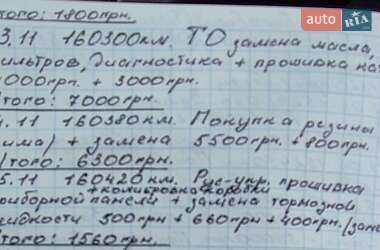 того: 1800грн.
auto RIA
3.11 160300км. ТО замена масла,
ильтров, Диагностика + прошивка на
000грп. + 3000грн.
того: 7000грн.
4.11 160380км. Покупка резины
има) + замена 5500грн. +800грн.
/того: 6300грн.
5.11 160420км. Рус-укр. прошивка
+ калибровка коробки
риборной панели + замена тормозной
идкости 500грн + 660грн + 400грн./заме
того: 1560грн.